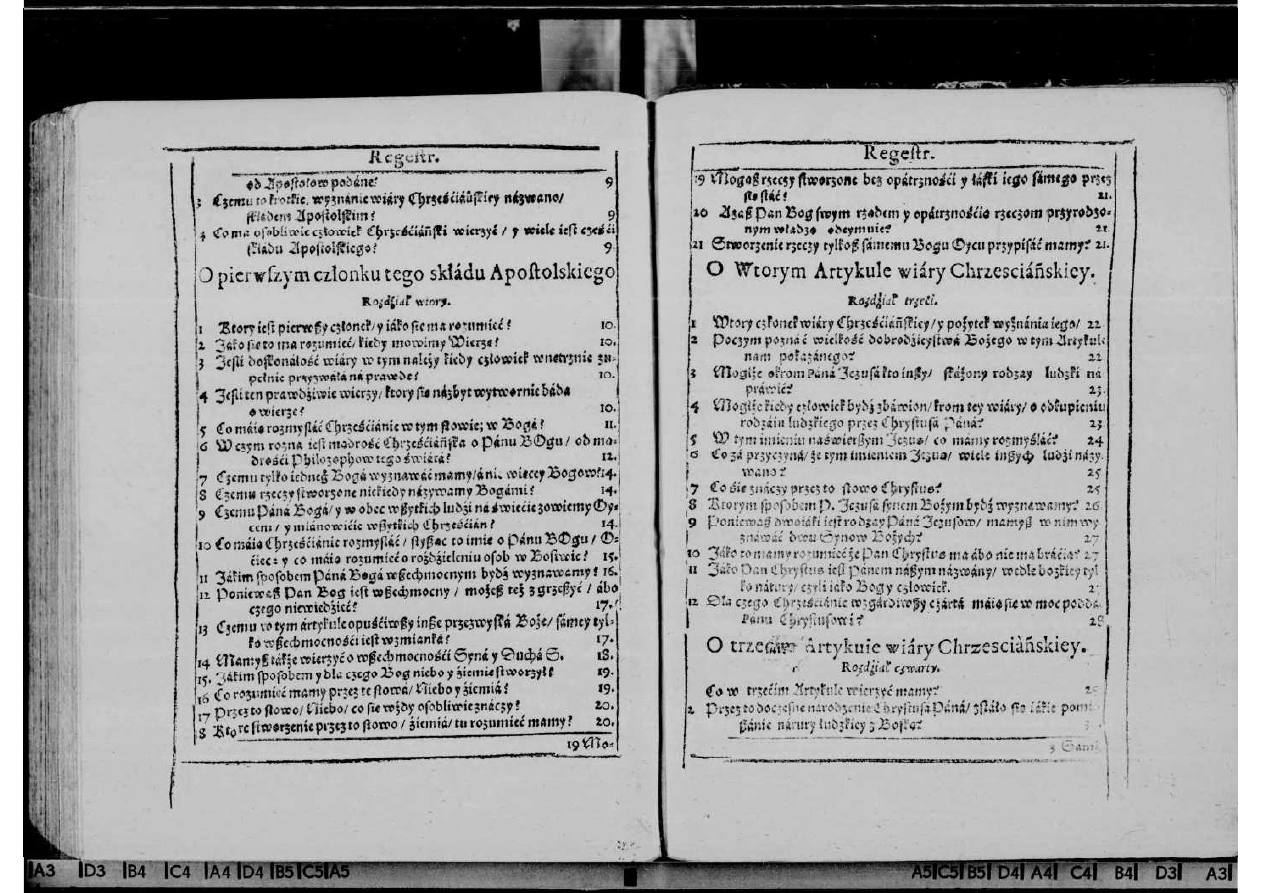 Regestr.
od Apostołow podáne? 9
3 Czemu to krotkie, wyznánie wiáry Chrześćiáńskiey názwano/
składem Apostolskim? 9
4 Co ma osobliwie człowiek Chrześćiáński wierzyć / y wiele iest części
składu Apostolskiego? 9
O pierwszym członku tego składu Apostolskiego
Rozdźiał wtory.
1 Ktory iest pierwszy członek/ y iáko sie ma rozumieć? 10.
2 Jáko sie to ma rozumieć/ kiedy mowimy Wierze? 10.
3 Jesli doskonáłość wiáry w tym należy kiedy człowiek wnetrznie zu-
pełnie przyzwala ná prawdę? 10.
4 Jesli ten prawdźiwie wierzy/ ktory sie názbyt wytwornie báda
o wierze? 10.
5 Co máią rozmyslać Chrześćiánie w tym słowie; w Bogá? 11.
6 W czym rozna iest mądrość Chrześćiáńska o Pánu BOgu/ od mą-
drości Philozophow tego świátá? 12.
7 Czemu tylko iedneg Bogá wyznawáć mamy/ ánie więcey Bogow? 14.
8 Czemu rzeczy stworzone niekiedy názywamy Bogámi? 14.
9 Czemu Páná Bogá/ y w obec wszytkich ludźi ná świećie zowiemy Oy-
cem/ y miánowićie wszytkich Chrześćian? 14.
10 Co máią Chrześćiánie rozmyslać/ słysząc to imie o Pánu BOgu/ O-
ćiec: y co máią rozumieć o rozdźieleniu osob w Bostwie? 15.
11 Jákim sposobem Páná Bogá wszechmocnym bydź wyznawamy? 16.
12 Poniewasz Pan Bog iest wszechmocny / możesz też zgrzeszyć / ábo
czego niewiedźieć? 17.
13 Czemu w tym ártykule opuśćiwszy insze przezwyská Boże/ sámey tyl-
ko wszechmocnośći iest wzmianká? 17.
14 Mamysz tákże wierzyć o wszechmocnośći Syná y Duchá S. 18.
15. Jákim sposobem y dla czego Bog niebo y źiemię stworzył? 19.
16 Co rozumieć mamy przez te słowá/ Niebo y źiemiá? 19.
17 Przez to słowo/ Niebo/ co sie wżdy osobliwie znáczy? 20.
8 Ktore stworzenie przez to słowo / źiemia/ tu rozumieć mamy? 20.
19 Mo-
Regestr.
19 Mogąsz rzeczy stworzone bez opátrznośći y łáski iego sámego przez
sie stać? 21.
20 Azasz Pan Bog swym rządem y opátrznośćią rzeczom przyrodzo-
nym władzą odeymuie? 21
21 Stworzenie rzeczy tylkosz sámemu Bogu Oycu przypisáć mamy? 21.
O Wtorym Artykule wiáry Chrzesciáńskiey.
Rozdźiał trzeći.
1 Wtory członek wiáry Chrześćiáńskiey/ y pożytek wyznánia iego/ 22
2 Poczym poznáć wielkość dobrodźieystwá Bożego w tym Artykule
nam pokazánego? 22
3 Mogłże okrom Páná Jezusá kto inszy/ skáżony rodzay ludzki ná
práwić? 23.
4 Mogłże kiedy człowiek bydź zbáwion/ krom tey wiáry/ o odkupieniu
rodzáiu ludzkiego przez Chrystusá Páná? 23
5 W tym imieniu naświętszym Jezus/ co mamy rozmyśláć? 24
6 Co zá przyczyná/ że tym imieniem Jezus/ wiele inszych ludźi názy
wano? 25
7 Co sie znáczy przez to słowo Chrystus? 25
8 Ktorym sposobem P. Jezusá synem Bożym bydź wyznawamy? 26
9 Poniewasz dwoiáki iest rodzay Páná Jezusow/ mamysz w nim wy
znáwáć dwu Synow Bożych? 27
10 Jáko to mamy rozumieć że Pan Chrystus ma ábo nie ma bráćia? 27
11 Jáko Pan Chrystus iest Pánem nászym názwány/ wedle bozkiey tyl
ko nátury/ czyli iáko Bog y człowiek.
12 Dla czego Chrześćiánie wzgárdźiwszy czártá máią sie w moc poddá
Pánu Chrystusowi? 28
O trzecim Artykule wiáry Chrzesciáńskiey.
Rozdźiał czwarty.
Co w trzećim Artykule wierzyć mamy? 28
2 Przez to doczesne národzenie Chrystusá Páná/ zstáło sie iákie pomie
szánie nátury ludzkiey z Boską?
3 Samſ
A3 D3 B4 C4 A4 D4 B5 C5 A5
A5 C5 B5 D4 A4 C4 B4 D3 A3